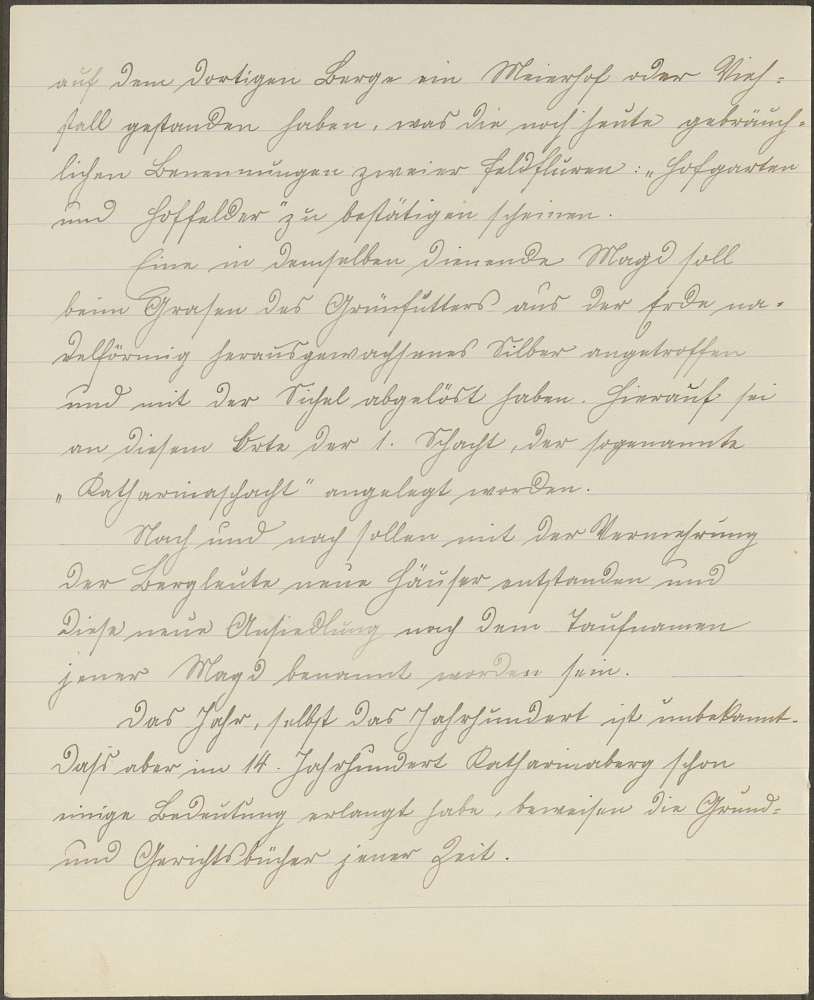 auf dem dortigen Berge ein Meierhof oder Vieh=
stall gestanden haben, was die noch heute gebräuch=
lichen Benennungen zweier Feldfluren: „Hofgarten
und Hoffelder" zu bestätigen scheinen.
Eine in demselben dienende Magd soll
beim Grasen des Grünfutters aus der Erde na=
delförmig herausgewachsenes Silber angetroffen
und mit der Sichel abgelöst haben. Hierauf sei
an diesem Orte der 1. Schacht, der sogenannte
„Katharinaschacht" angelegt worden.
Nach und nach sollen mit der Vermehrung
der Bergleute neue Häuser entstanden und
diese neue Ansiedlung nach dem Taufnamen
jener Magd benannt worden sein.
Das Jahr, selbst das Jahrhundert ist unbekannt.
Dass aber im 14. Jahrhundert Katharinaberg schon
einige Bedeutung erlangt habe, beweisen die Grund=
und Gerichtsbücher jener Zeit.